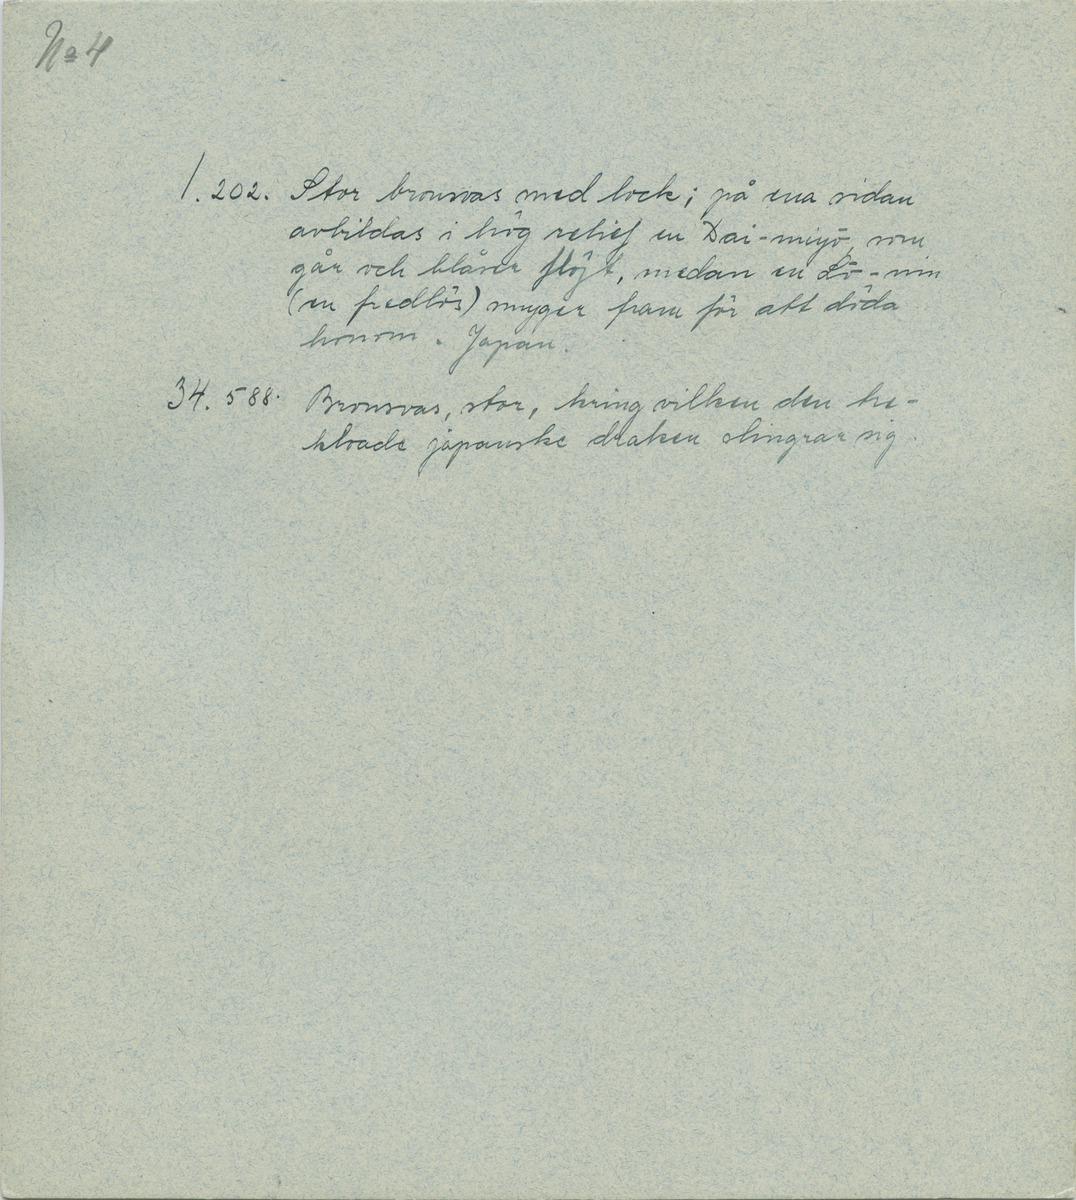 No 4
1. 202. Stor bronsvas med lock; på ena sidan
avbildas i hög relief en Dai-miyō, som
går och blåser flöjt, medan en Lō-nin
(en fredlös) smyger fram för att döda
honom. Japan.
34. 588. Bronsvas, stor, kring vilken den tre-
klöade japanske draken slingrar sig.